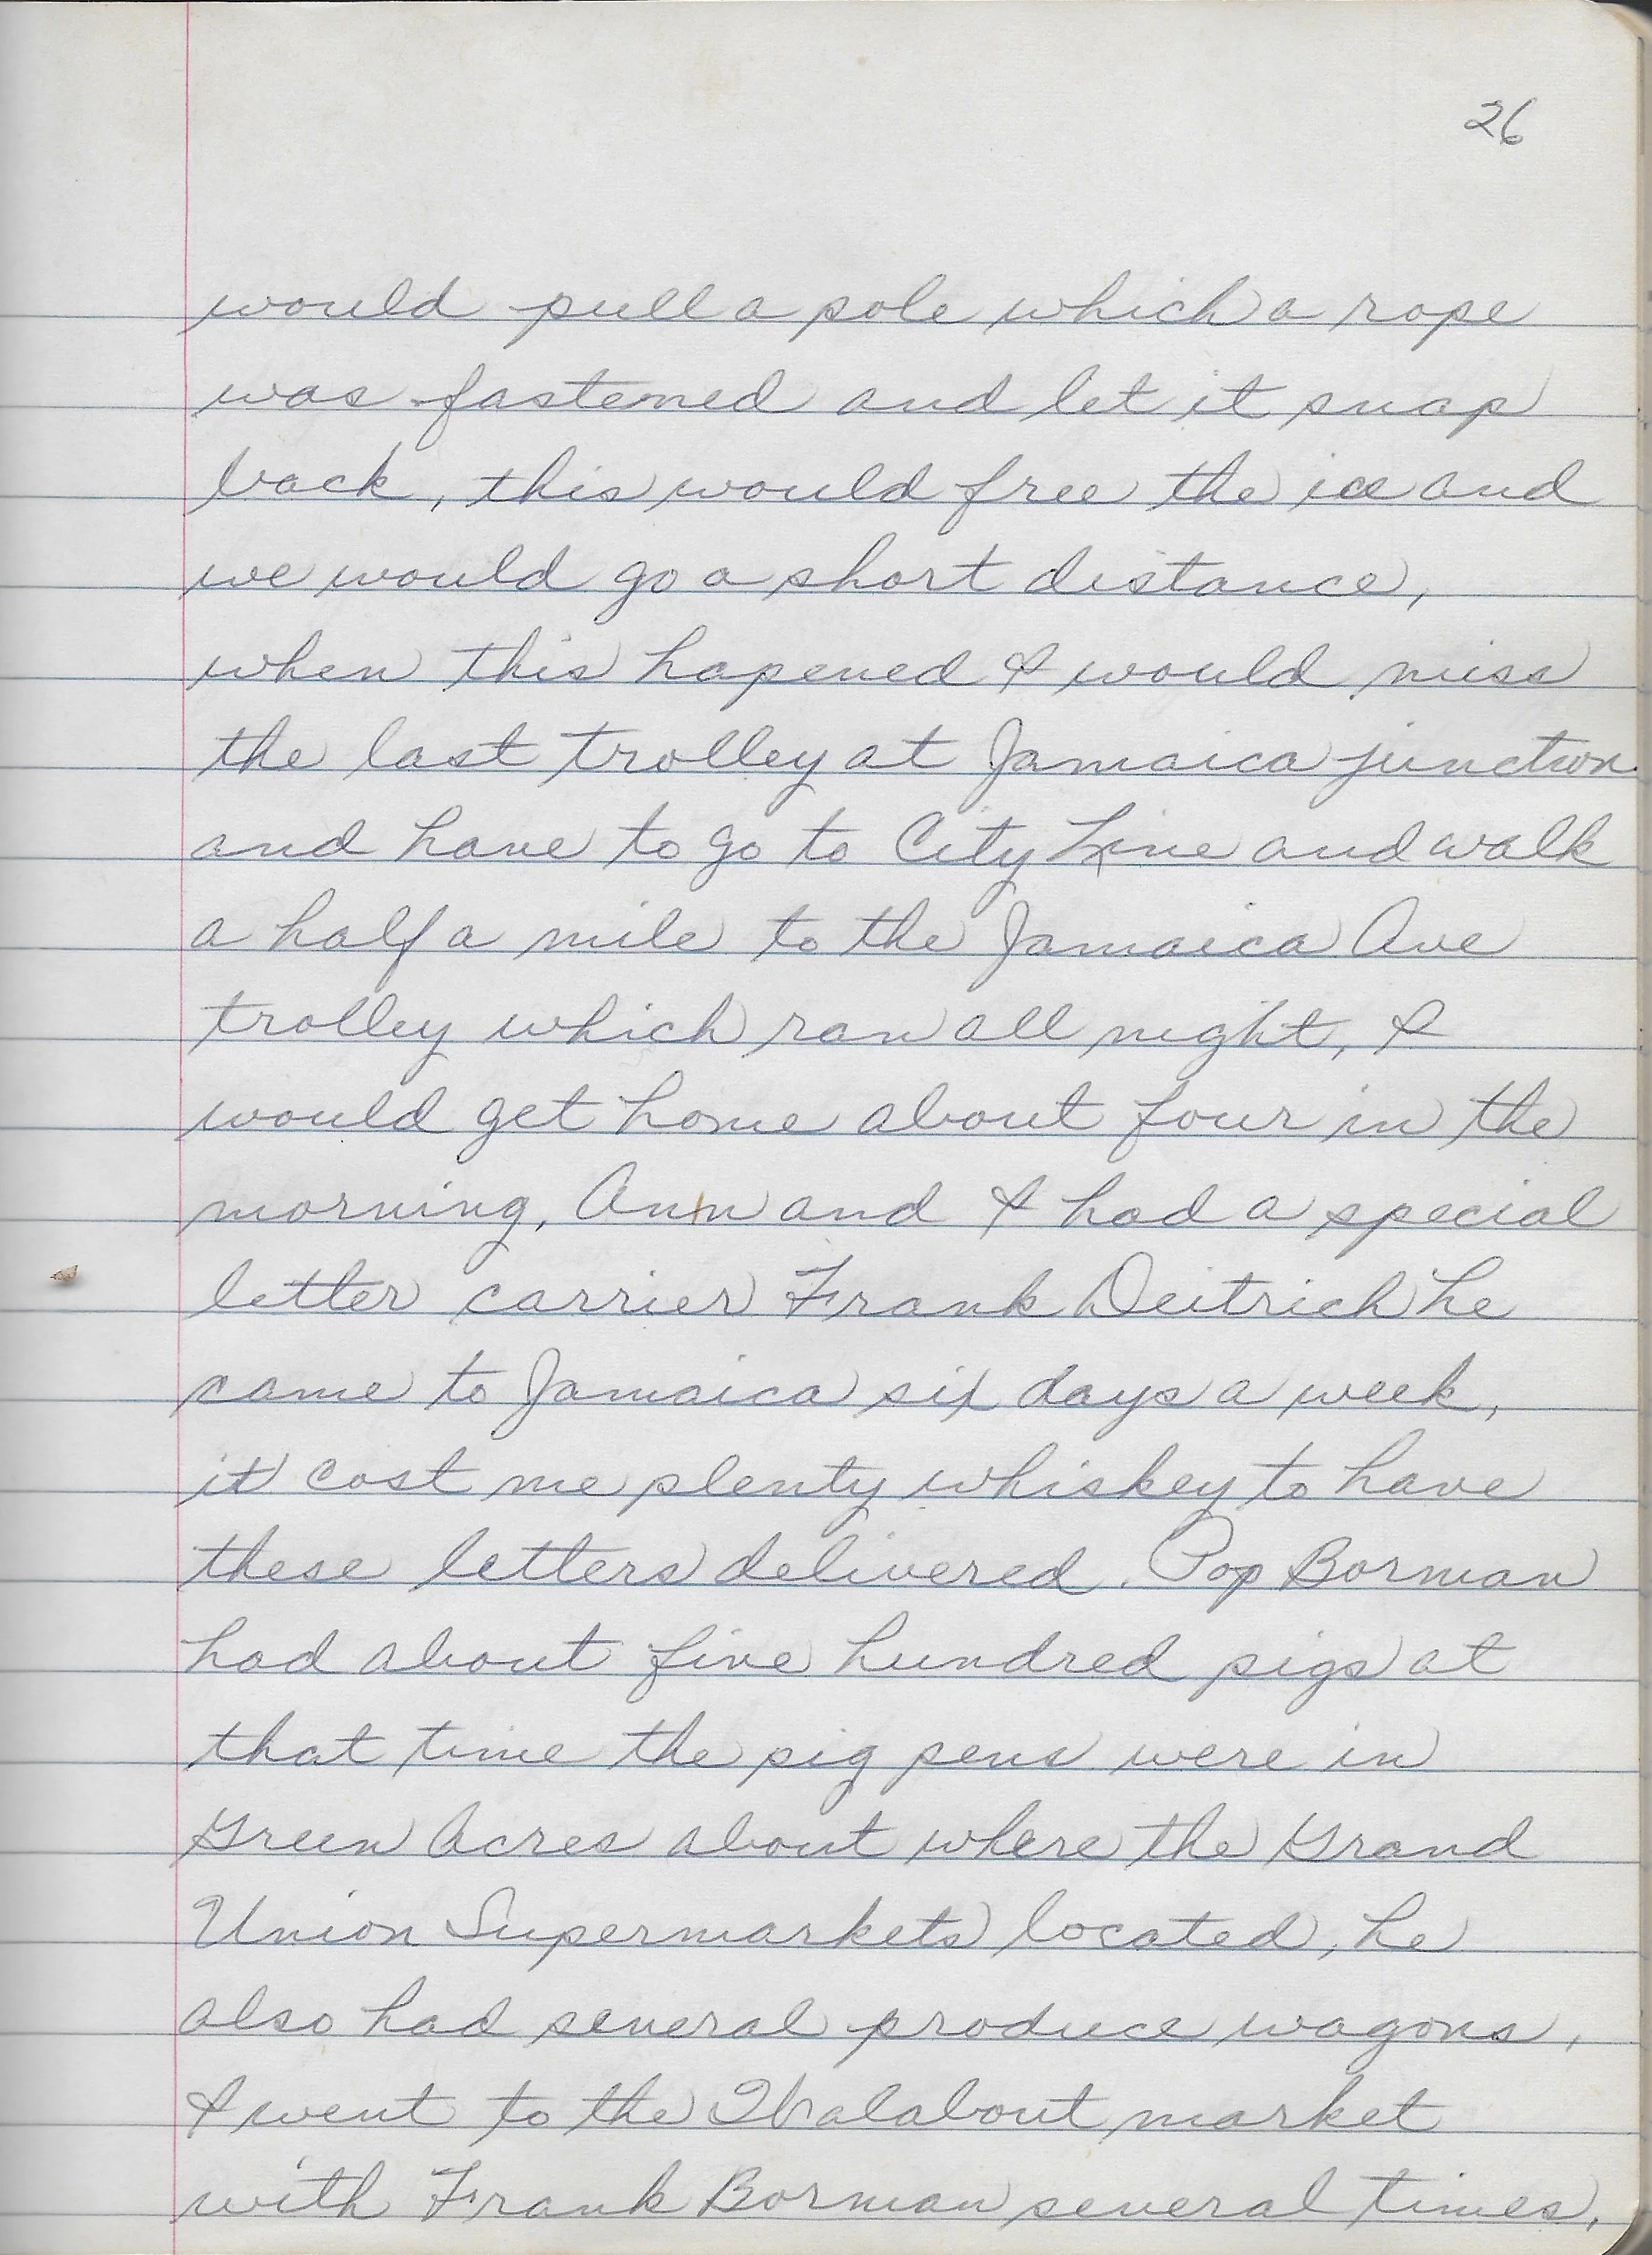 26
would pull a pole which a rope
was fastened and let it snap
back, this would free the ice and
we would go a short distance,
when this hapened I would miss
the last trolley at Jamaica junction
and have to go to City Line and walk
a half a mile to the Jamaica Ave
trolley which ran all night, I
would get home about four in the
morning, Ann and I had a special
letter carrier Frank Deitrich he
came to Jamaica six days a week,
it cost me plenty whiskey to have
these letters delivered. Pop Borman
had about five hundred pigs at
that time the pig pens were in
Green Acres about where the Grand
Union Supermarkets located, he
also had several produce wagons,
I went to the Walabout market
with Frank Borman several times,